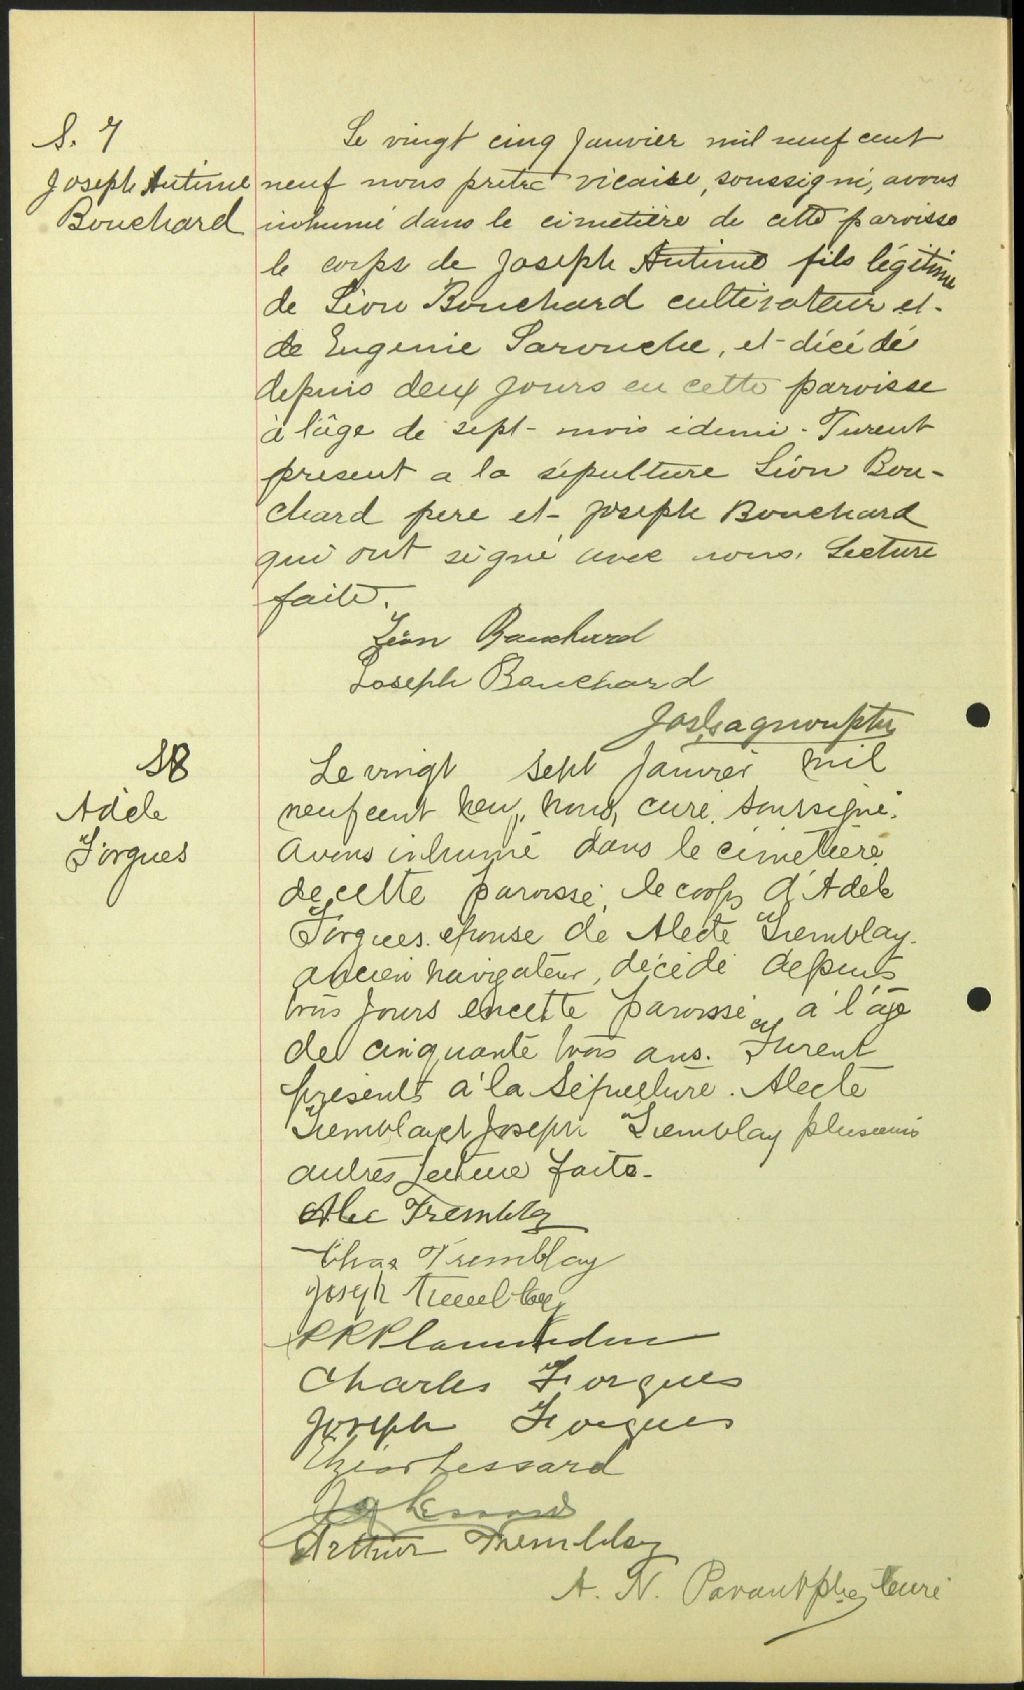 S. 7
Joseph Antime
Bouchard
Le vingt cinq Janvier mil neuf cent
neuf nous pretre vicaire, soussigné, avons
inhumé dans le cimetière de cette paroisse
le corps de Joseph Antime fils légitime
de Léon Bouchard cultivateur et
de Eugenie Larouche, et décédé
depuis deux jours en cette paroisse
à l'âge de sept mois idemi. Furent
present a la sépulture Léon Bou-
chard pere et Joseph Bouchard
qui ont signé avec nous. Lecture
faite.
Léon Bouchard
Joseph Bouchard
Jos Gagnon ptre
S8
Adèle
Forgues
Le vingt sept Janvier mil
neufcent neuf, nous, curé soussigné
avons inhumé dans le cimetière
de cette paroisse, le corps d'Adèle
Forgues épouse de Alecte Tremblay
ancien navigateur, décédé depuis
trois jours en cette paroisse, à l'âge
de cinquante trois ans. Furent
présents à la sépulture. Alecte
Tremblay et Joseph Tremblay plusieurs
autres Lecture faite-
Alec Tremblay
Chas Tremblay
Joseph Tremblay
Plamondon
Charles Forgues
Joseph Forgues
Lessard
Arthur Tremblay
A. N. Parant ptre, curé